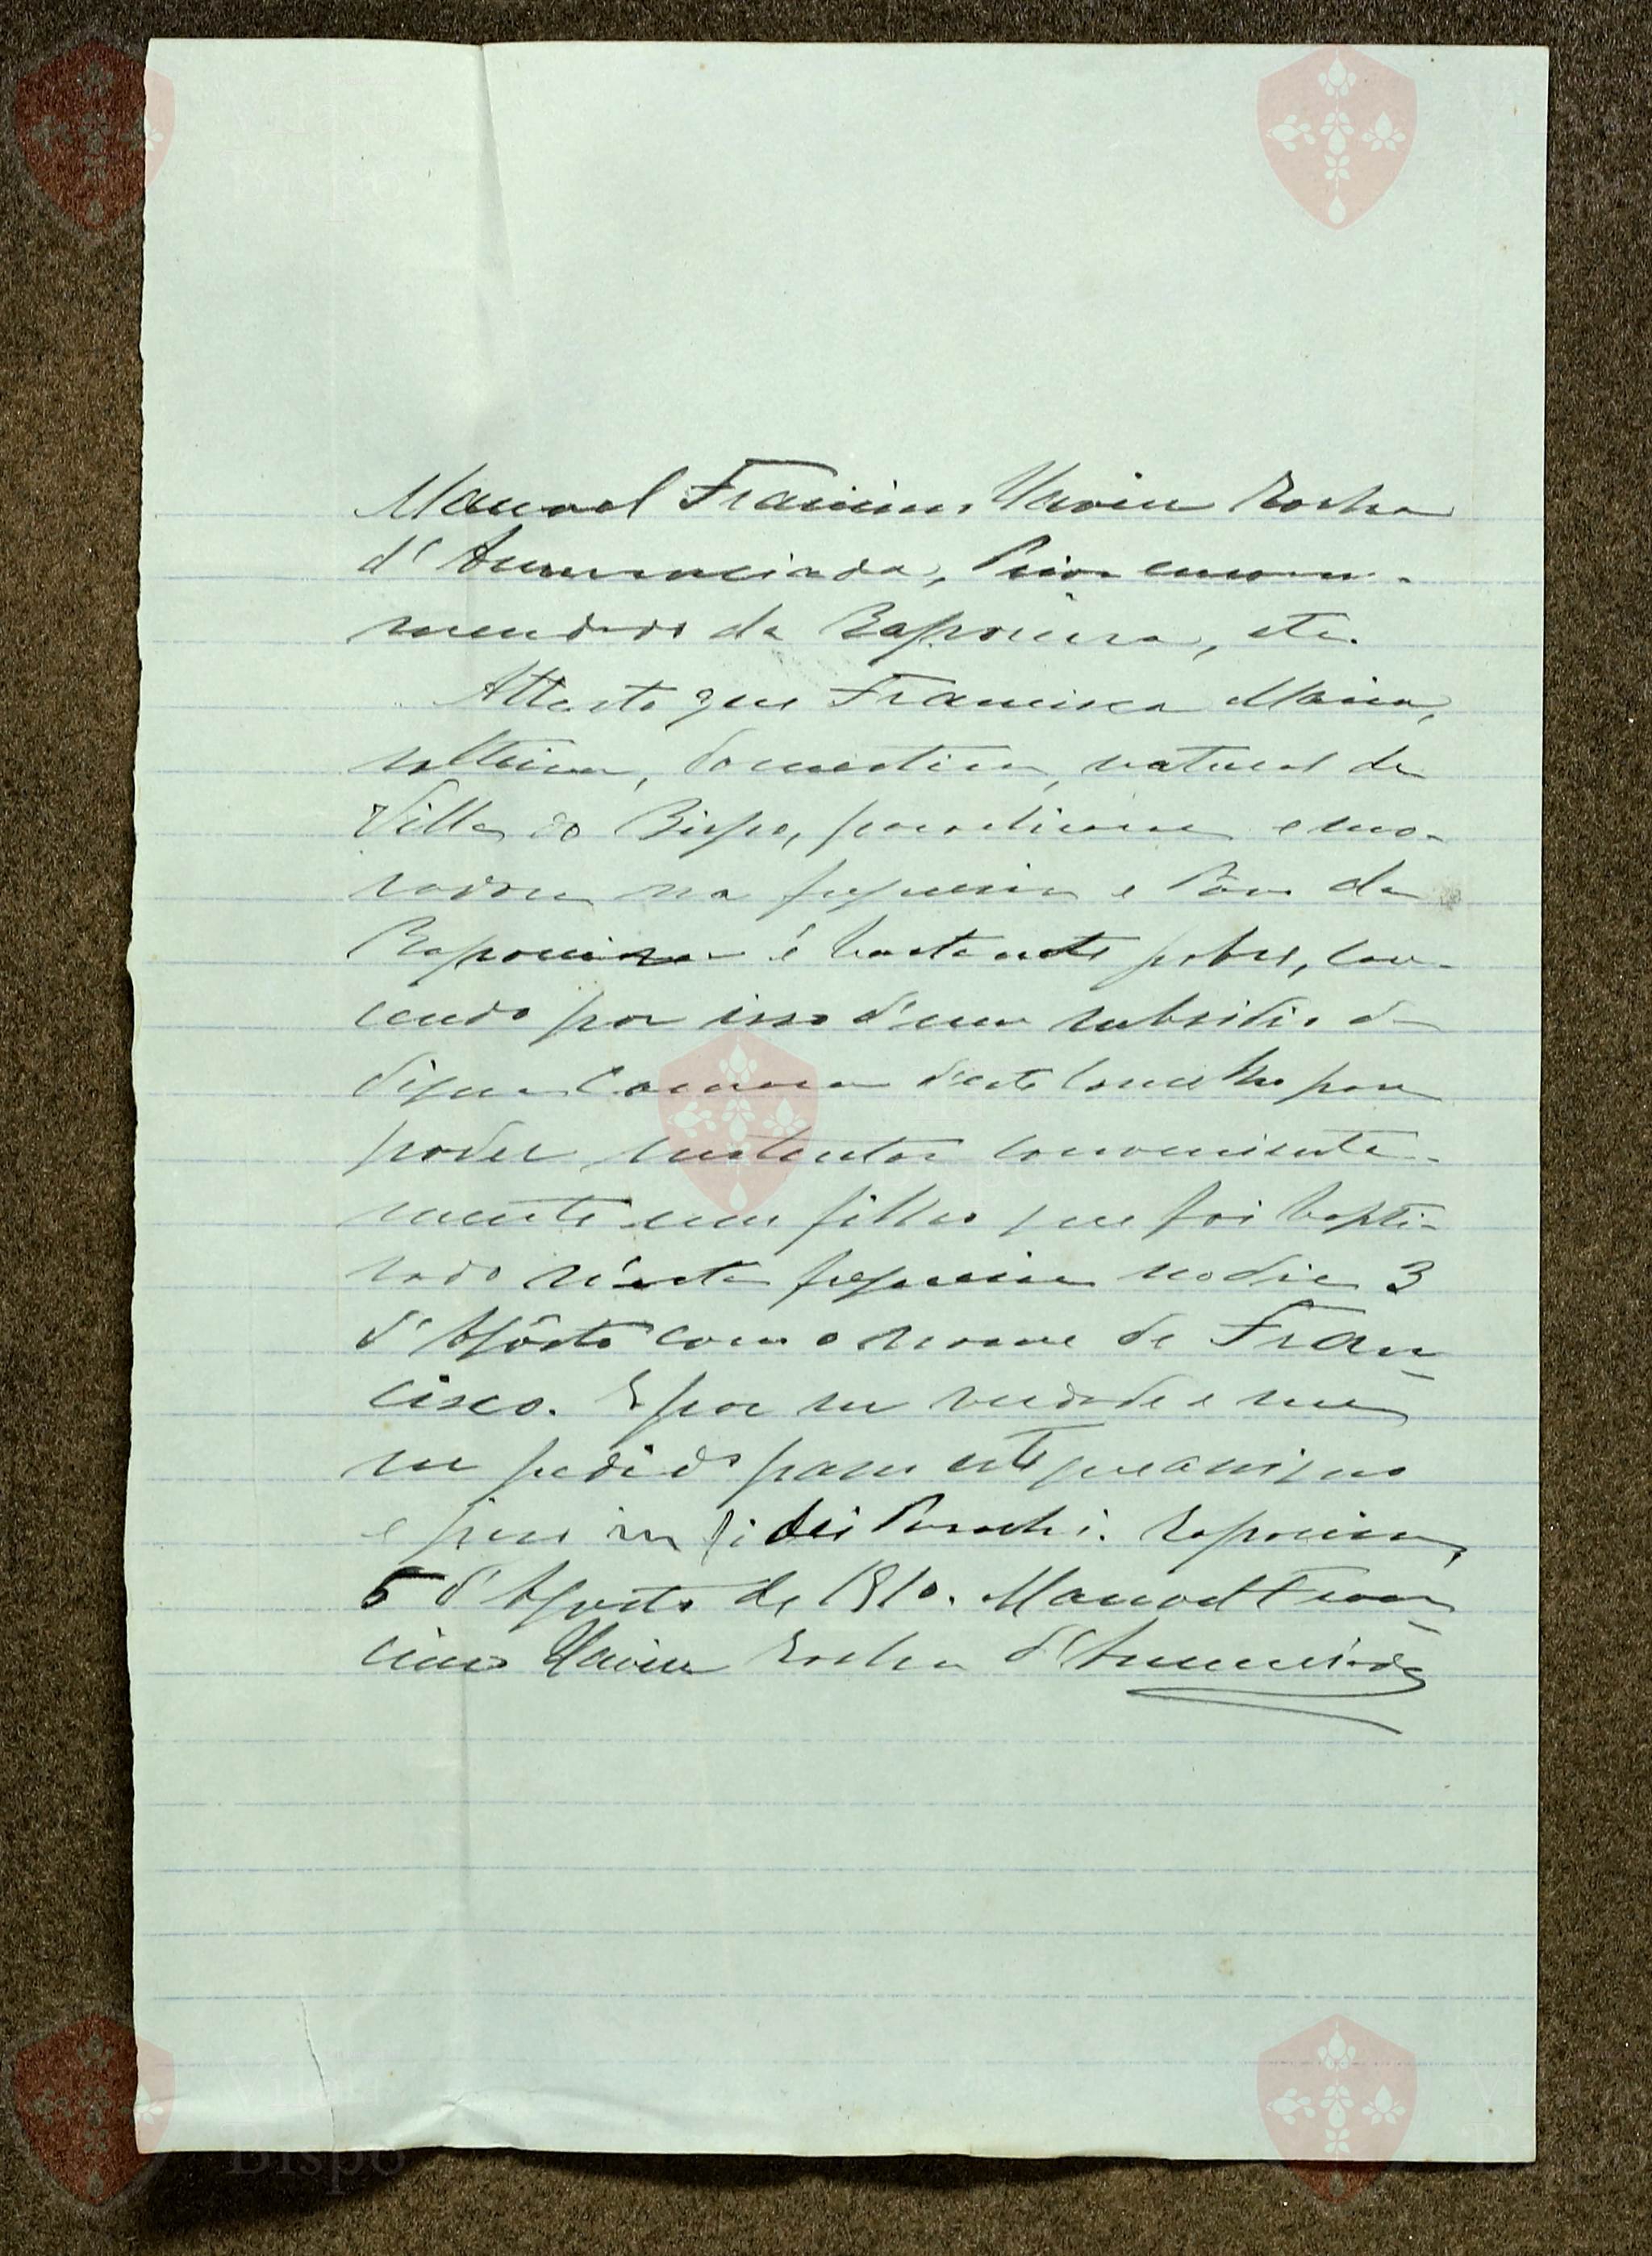 Manoel Francisco Xavier Rocha
d'Annunciada, Prior encom-
mendado da Raposeira, etc.
Attesto que Francisca Maria,
solteira, domestica, natural de
Villa do Bispo, parochiana e mo-
radora na freguesia e Povo da
Raposeira é bastante pobre, care-
cendo por isso d'um subsidio da
digna Camara d'este Concelho para
poder sustentar conveniente-
mente um filho que foi bapti-
sado n'esta freguesia no dia 3
d'Agôsto com o nome de Fran-
cisco. E por ser verdade e me
ser pedido passei este que assigno
e juro in fidei Parochi. Raposeira,
5 d'Agosto de 1910. Manoel Fran-
cisco Xavier Rocha d'Annunciada
Bispo